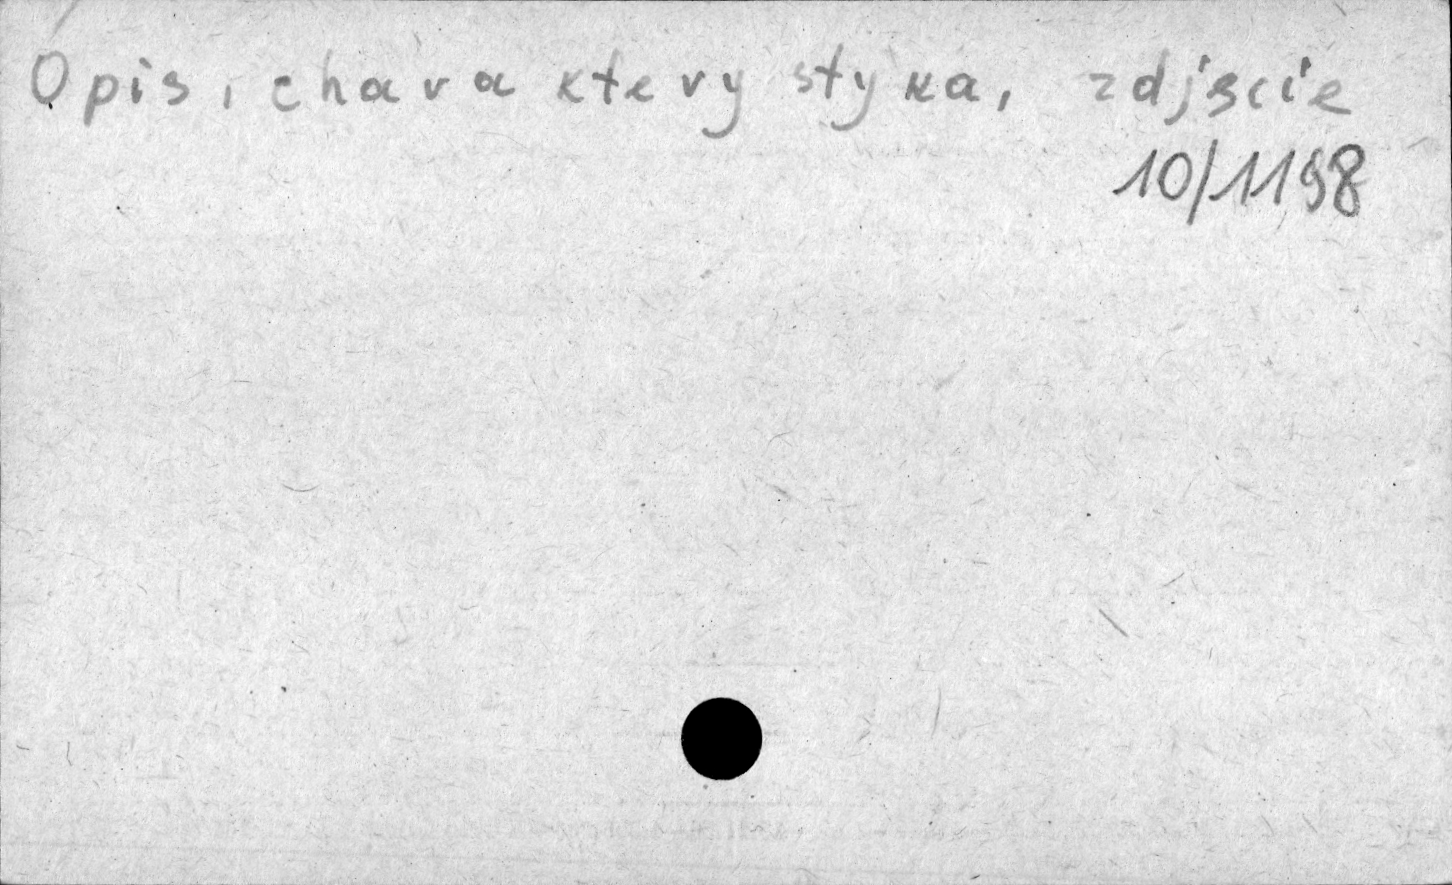 Opis, charakterystyka, zdjęcie
10/1198